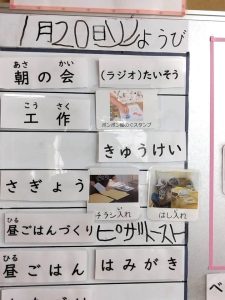 1月20日(火)ようび
あさ かい
朝の会
(ラジオ)たいそう
こう さく
工作
きゅうけい
さぎょう
チラシ入れ
はし入れ
ひる
昼ごはんづくり
ピザトースト
ひる
昼ごはん
はみがき